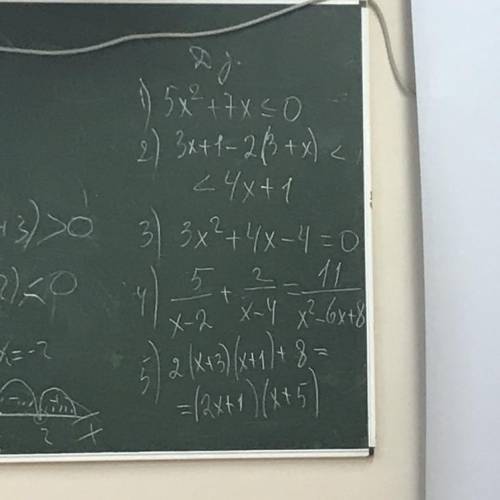 Д/з.
1) 5x²+7x≤0
2) 3x+1-2(3+x)<
<4x+1
3) 3x²+4x-4=0
4) 5/(x-2) + 2/(x-4) = 11/(x²-6x+8)
5) 2(x+3)(x+1)+8=
=(2x+1)(x+5)
+3)>0
2)<0
x=-2
2 x